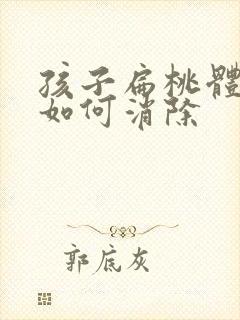 孩子扁桃體
如何消除
郭底灰